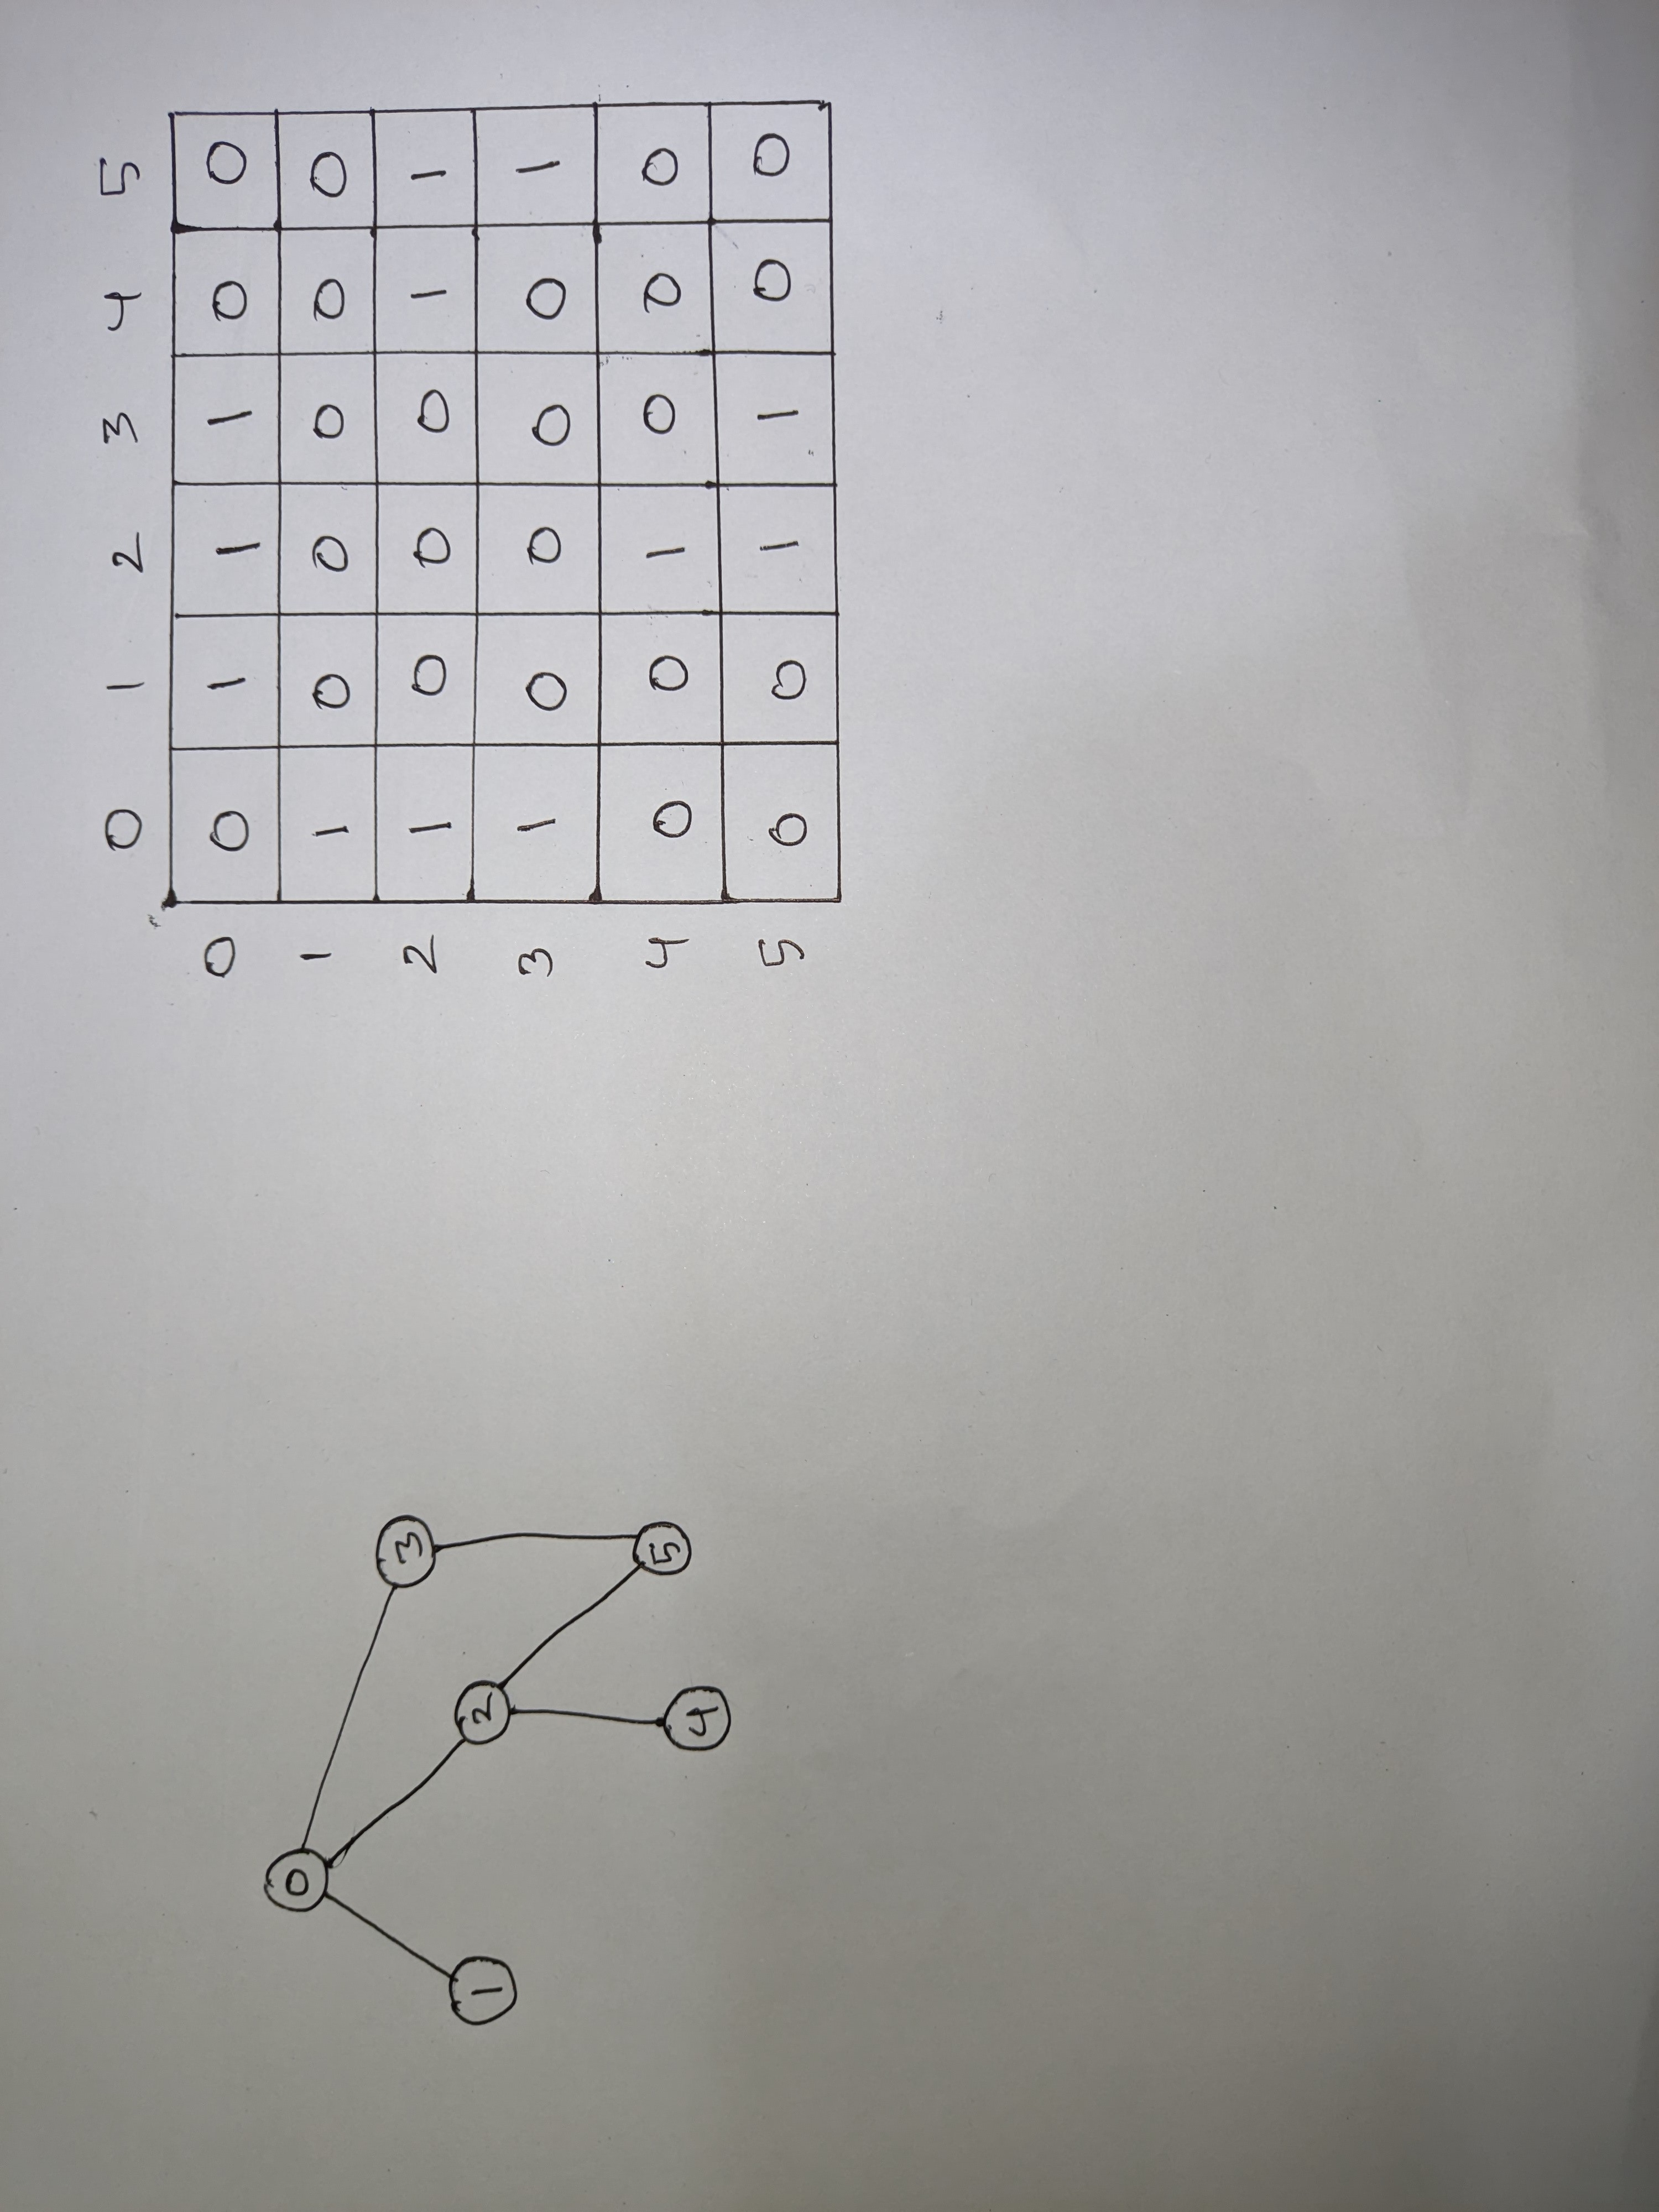 0
1
2
3
4
5
0 1 2 3 4 5
0 0 1 1 1 0 0
1 1 0 0 0 0 0
2 1 0 0 0 1 1
3 1 0 0 0 0 1
4 0 0 1 0 0 0
5 0 0 1 1 0 0